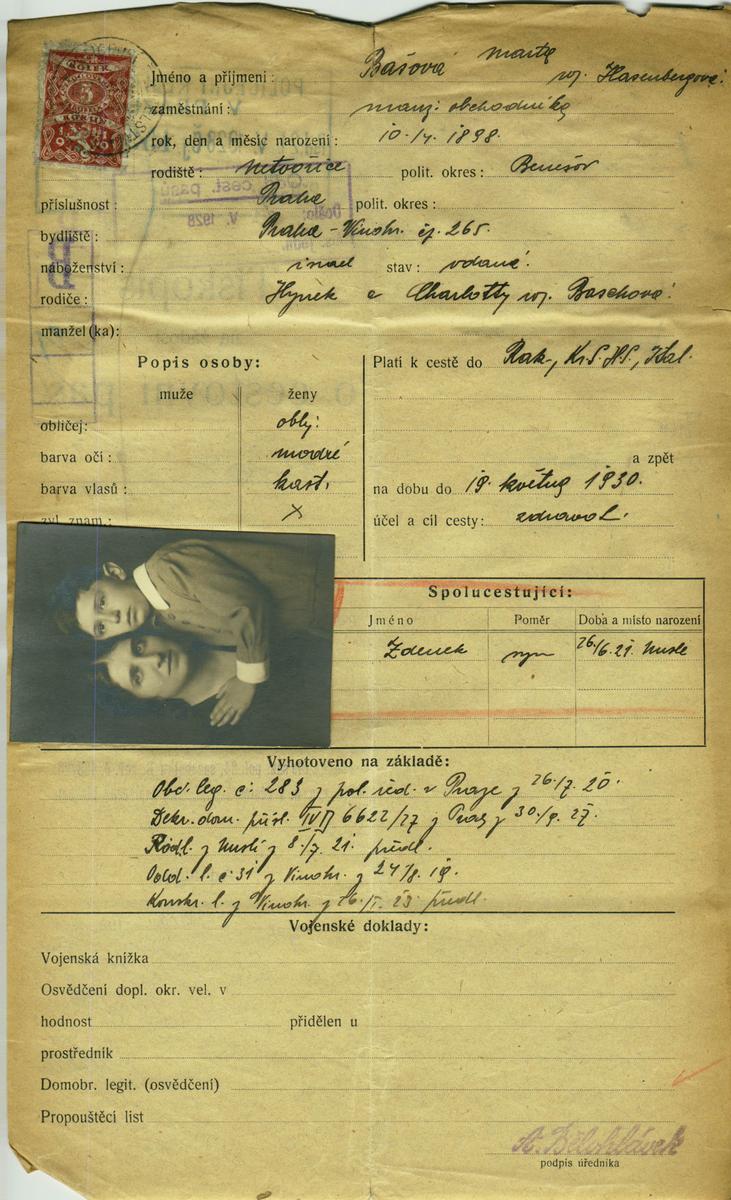 KOLEK
3
KORUNY
1919
Jméno a příjmení: Bašová Marta roz. Hasenbergová.
zaměstnání: manž. obchodníka
rok, den a měsíc narození: 10.IV. 1898.
rodiště: Netvořice polit. okres: Benešov
příslušnost: Praha polit. okres:
bydliště: Praha - Vinohr. čp. 265.
náboženství: israel stav: vdaná.
rodiče: Hynek a Charlotty roz. Baschová.
manžel(ka):
Popis osoby: Platí k cestě do Rak., Kr.S.H.S., Ital.
muže ženy
obličej: oblý.
barva očí: modré a zpět
barva vlasů: kašt. na dobu do 19. května 1930.
zvl. znam.: X účel a cíl cesty: zdravot.
Spolucestující:
Jméno Poměr Doba a místo narození
Zdenek syn 26/6.21. Nusle
Vyhotoveno na základě:
Obč. leg. č. 283 z pol. řed. v Praze z 26./7. 20.
Dekr. dom. přísl. 6622/27 z Prahy z 30./9. 27.
Rodl. z Nuslí z 8./7. 21. předl.
Odd. l. č 31 z Vinohr. z 24/8. 19.
Konskr. l. z Vinohr. z 26./I. 23. předl.
Vojenské doklady:
Vojenská knížka
Osvědčení dopl. okr. vel. v
hodnost přidělen u
prostředník
Domobr. legit. (osvědčení)
Propouštěcí list
A. Bělohlávek
podpis úředníka